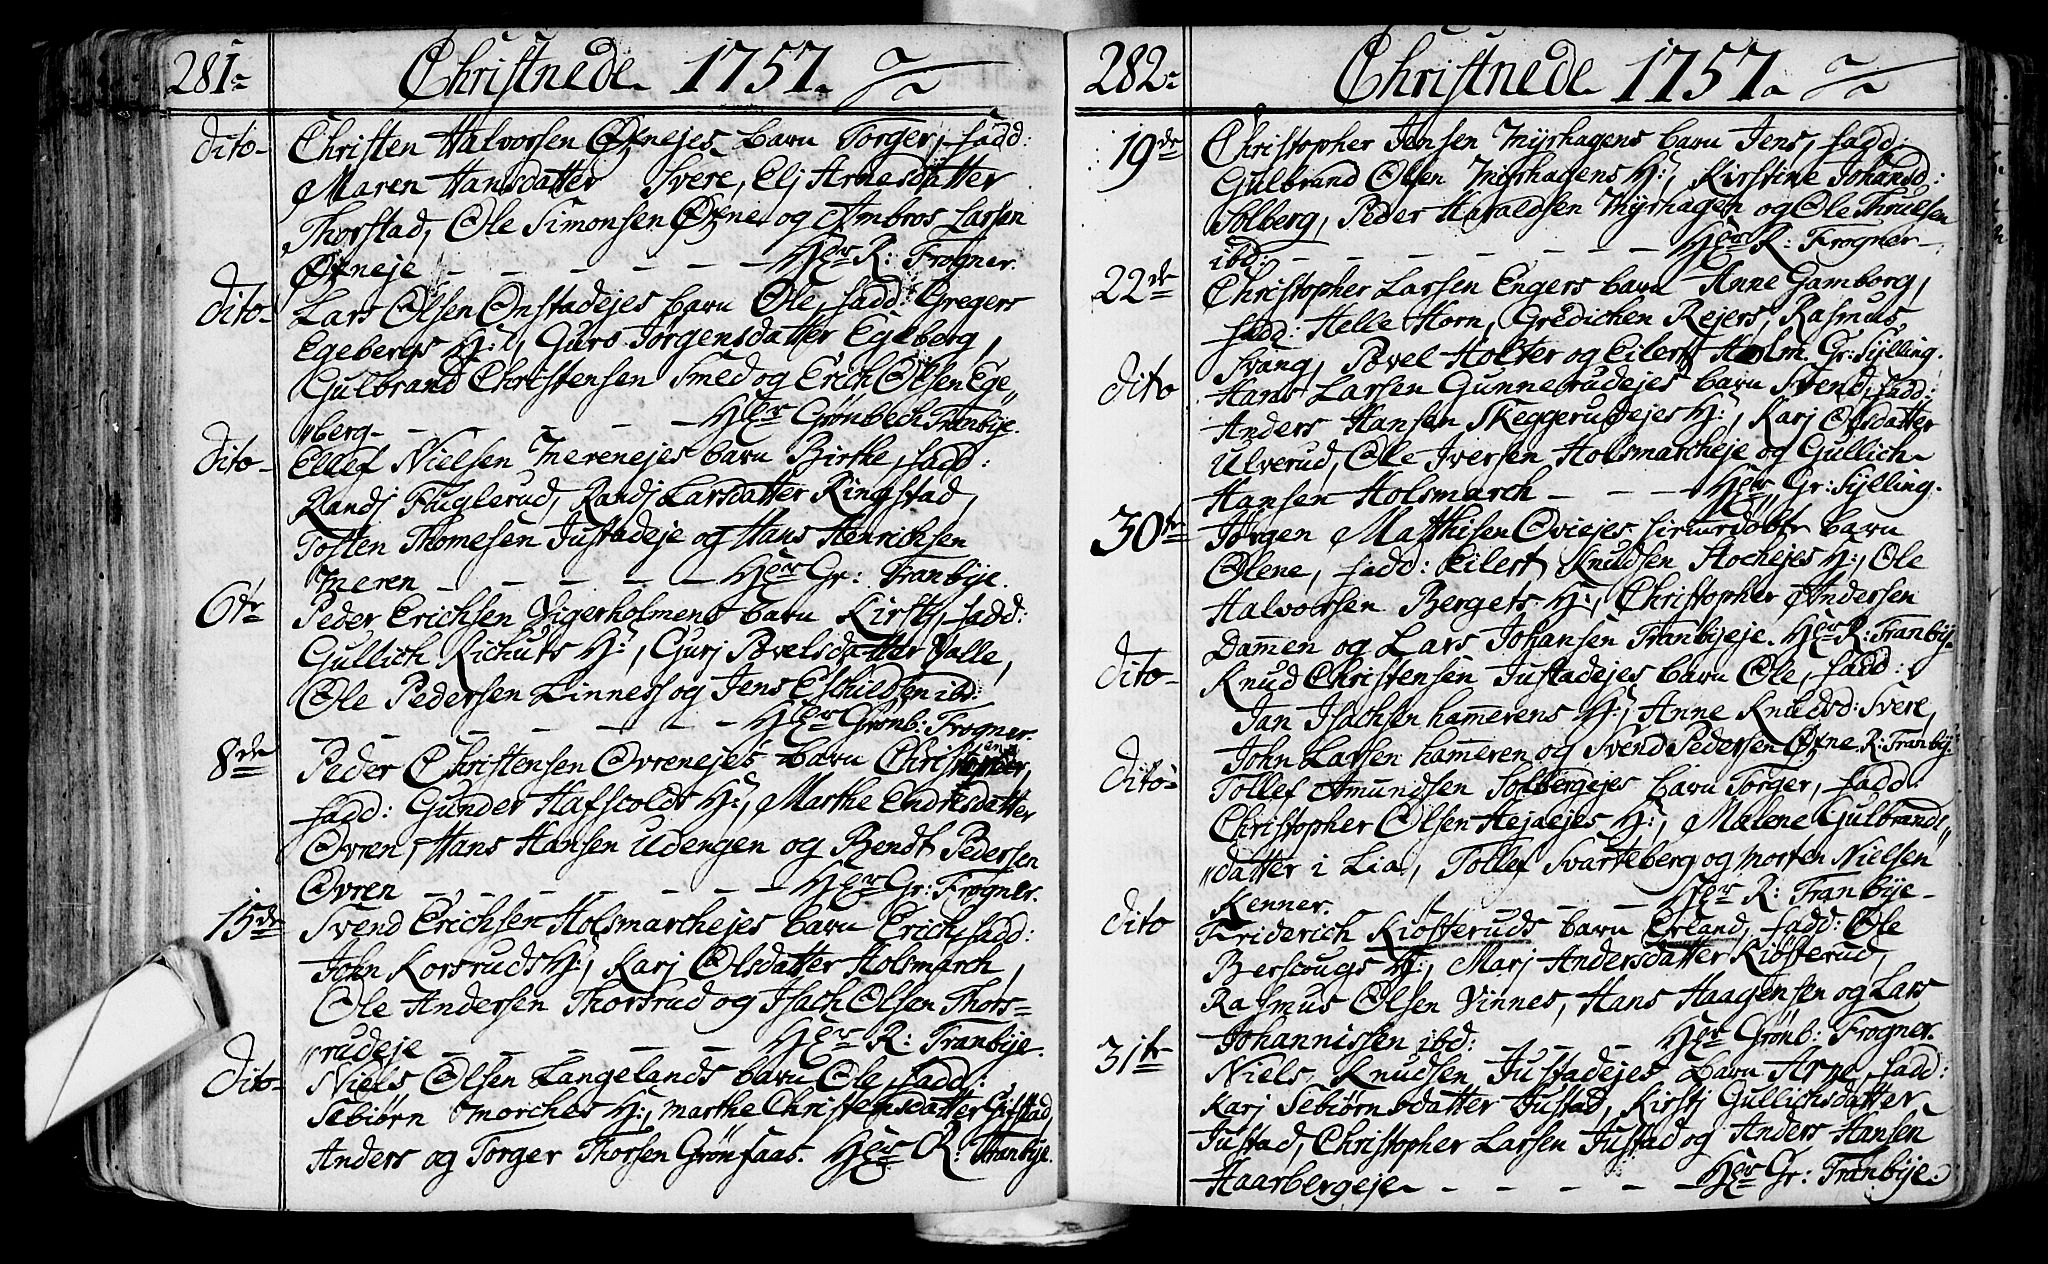 281. Christnede 1757.
dito- Christen Halvorsen Øxnejes barn Torger, fadd:
Maren Hansdatter Svere, Elj Arnesdatter
Thorstad, Ole Simonsen Øxne og Ambros Larsen
Øxneje - - - - - - Hr R: Frogner.
dito- Lars Olsen Onstadejes barn Ole, fadd: Gregers
Egebergs H:, Guro Jørgensdatter Egeberg,
Gulbrand Christensen Smed og Erich Olsen Ege„
„berg - - - - - Hr Grønbech Tranbÿe.
dito- Ellef Nielsen Merenejes barn Birthe, fadd:
Randj Fuglerud, Randj Larsdatter Ringstad,
Tosten Thomesen Justadeje og Hans Henrichsen
Meren - - - - - Hr Gr: Tranbÿe.
6te Peder Erichsen Vigerholmens barn Kirstj, fadd:
Gullich Richuts H:, Gurj Povelsdatter Valle,
Ole Pedersen Linnes og Jens Eschildsen ibd:
- - - - - - Hr Grønb: Frogner.
8de Peder Christensen Ovrenejes barn Christen,
fadd: Gunder Hafscoldts H:, Marthe Endresdatter
Øvren, Hans Hansen Udengen og Bendt Pedersen
Øvren - - - - - - Hr Gr: Frogner.
15de Svend Erichsen Holsmarchejes barn Erich, fadd:
John Korsruds H:, Karj Olsdatter Holsmarch,
Ole Andersen Thorsrud og Isach Olsen Thors=
„rudeje - - - - - - Hr R: Tranbÿe.
dito- Niels Olsen Langelands barn Ole, fadd:
Sebiørn Morches H:, Marthe Christensdatter Gifstad,
Anders og Torger Thorsen Grønsaas. Hr R: Tranbÿe.
282. Christnede 1757.
19de Christopher Jensen Mÿrhagens barn Jens, fadd:
Gulbrand Olsen Mÿrhagens H:, Kirstine Johansd:
Solberg, Peder Haraldsen Mÿrhagen og Ole Thruelsen
ibd: - - - - - - Hr R: Frogner-
22de Christopher Larsen Engers barn Anne Gamborg,
fadd: Helle Horn, Gredichen Rejers, Rasmus
Svang, Povel Holter og Eilert Holm. Gr: Sÿlling.
dito Hans Larsen Gunnerudejes barn Svend, fadd:
Anders Hansen Skeggerudejes H:, Karj Olsdatter
Ulverud, Ole Iversen Holsmarcheje og Gullich
Hansen Holsmarch - - - Hr Gr: Sÿlling.
30te Jørgen Matthisen Oviejes hiemedøbte barn
Olene, fadd: Eilert Knudsen Hochejes H:, Ole
Halvorsen Bergets H:, Christopher Andersen
Dam̄en og Lars Johansen Tranbÿeje. Hr R: Tranbÿ-
dito- Knud Christensen Justadejes barn Ole, fadd:
Jan Isachsen ham̄erens H:, Anne Knudsd: Svere,
John Larsen ham̄eren og Svend Pedersen Øxne. R: Tranbÿ.
dito- Tollef Amundsen Solbergejes barn Torger, fadd:
Christopher Olsen Hejaejes H:, Malene Gulbrands„
„datter i Lia, Tollef Svarteberg og Morten Nielsen
Kenner. - - - Hr R: Tranbÿe-
dito Friderich Kiosteruds barn Erland, fadd: Ole
Berscougs H:, Marj Andersdatter Kiøsterud,
Rasmus Olsen Vinnes, Hans Haagensen og Lars
Johannissen ibd: - - - Hr Grønb: Frogner.
31te Niels Knudsen Justadejes barn Arne, fadd:
Karj Sebiørnsdatter Justad, Kirstj Gullichsdatter
Justad, Christopher Larsen Justad og Anders Hansen
Haarbergeje - - - - - Hr Gr: Tranbÿe.